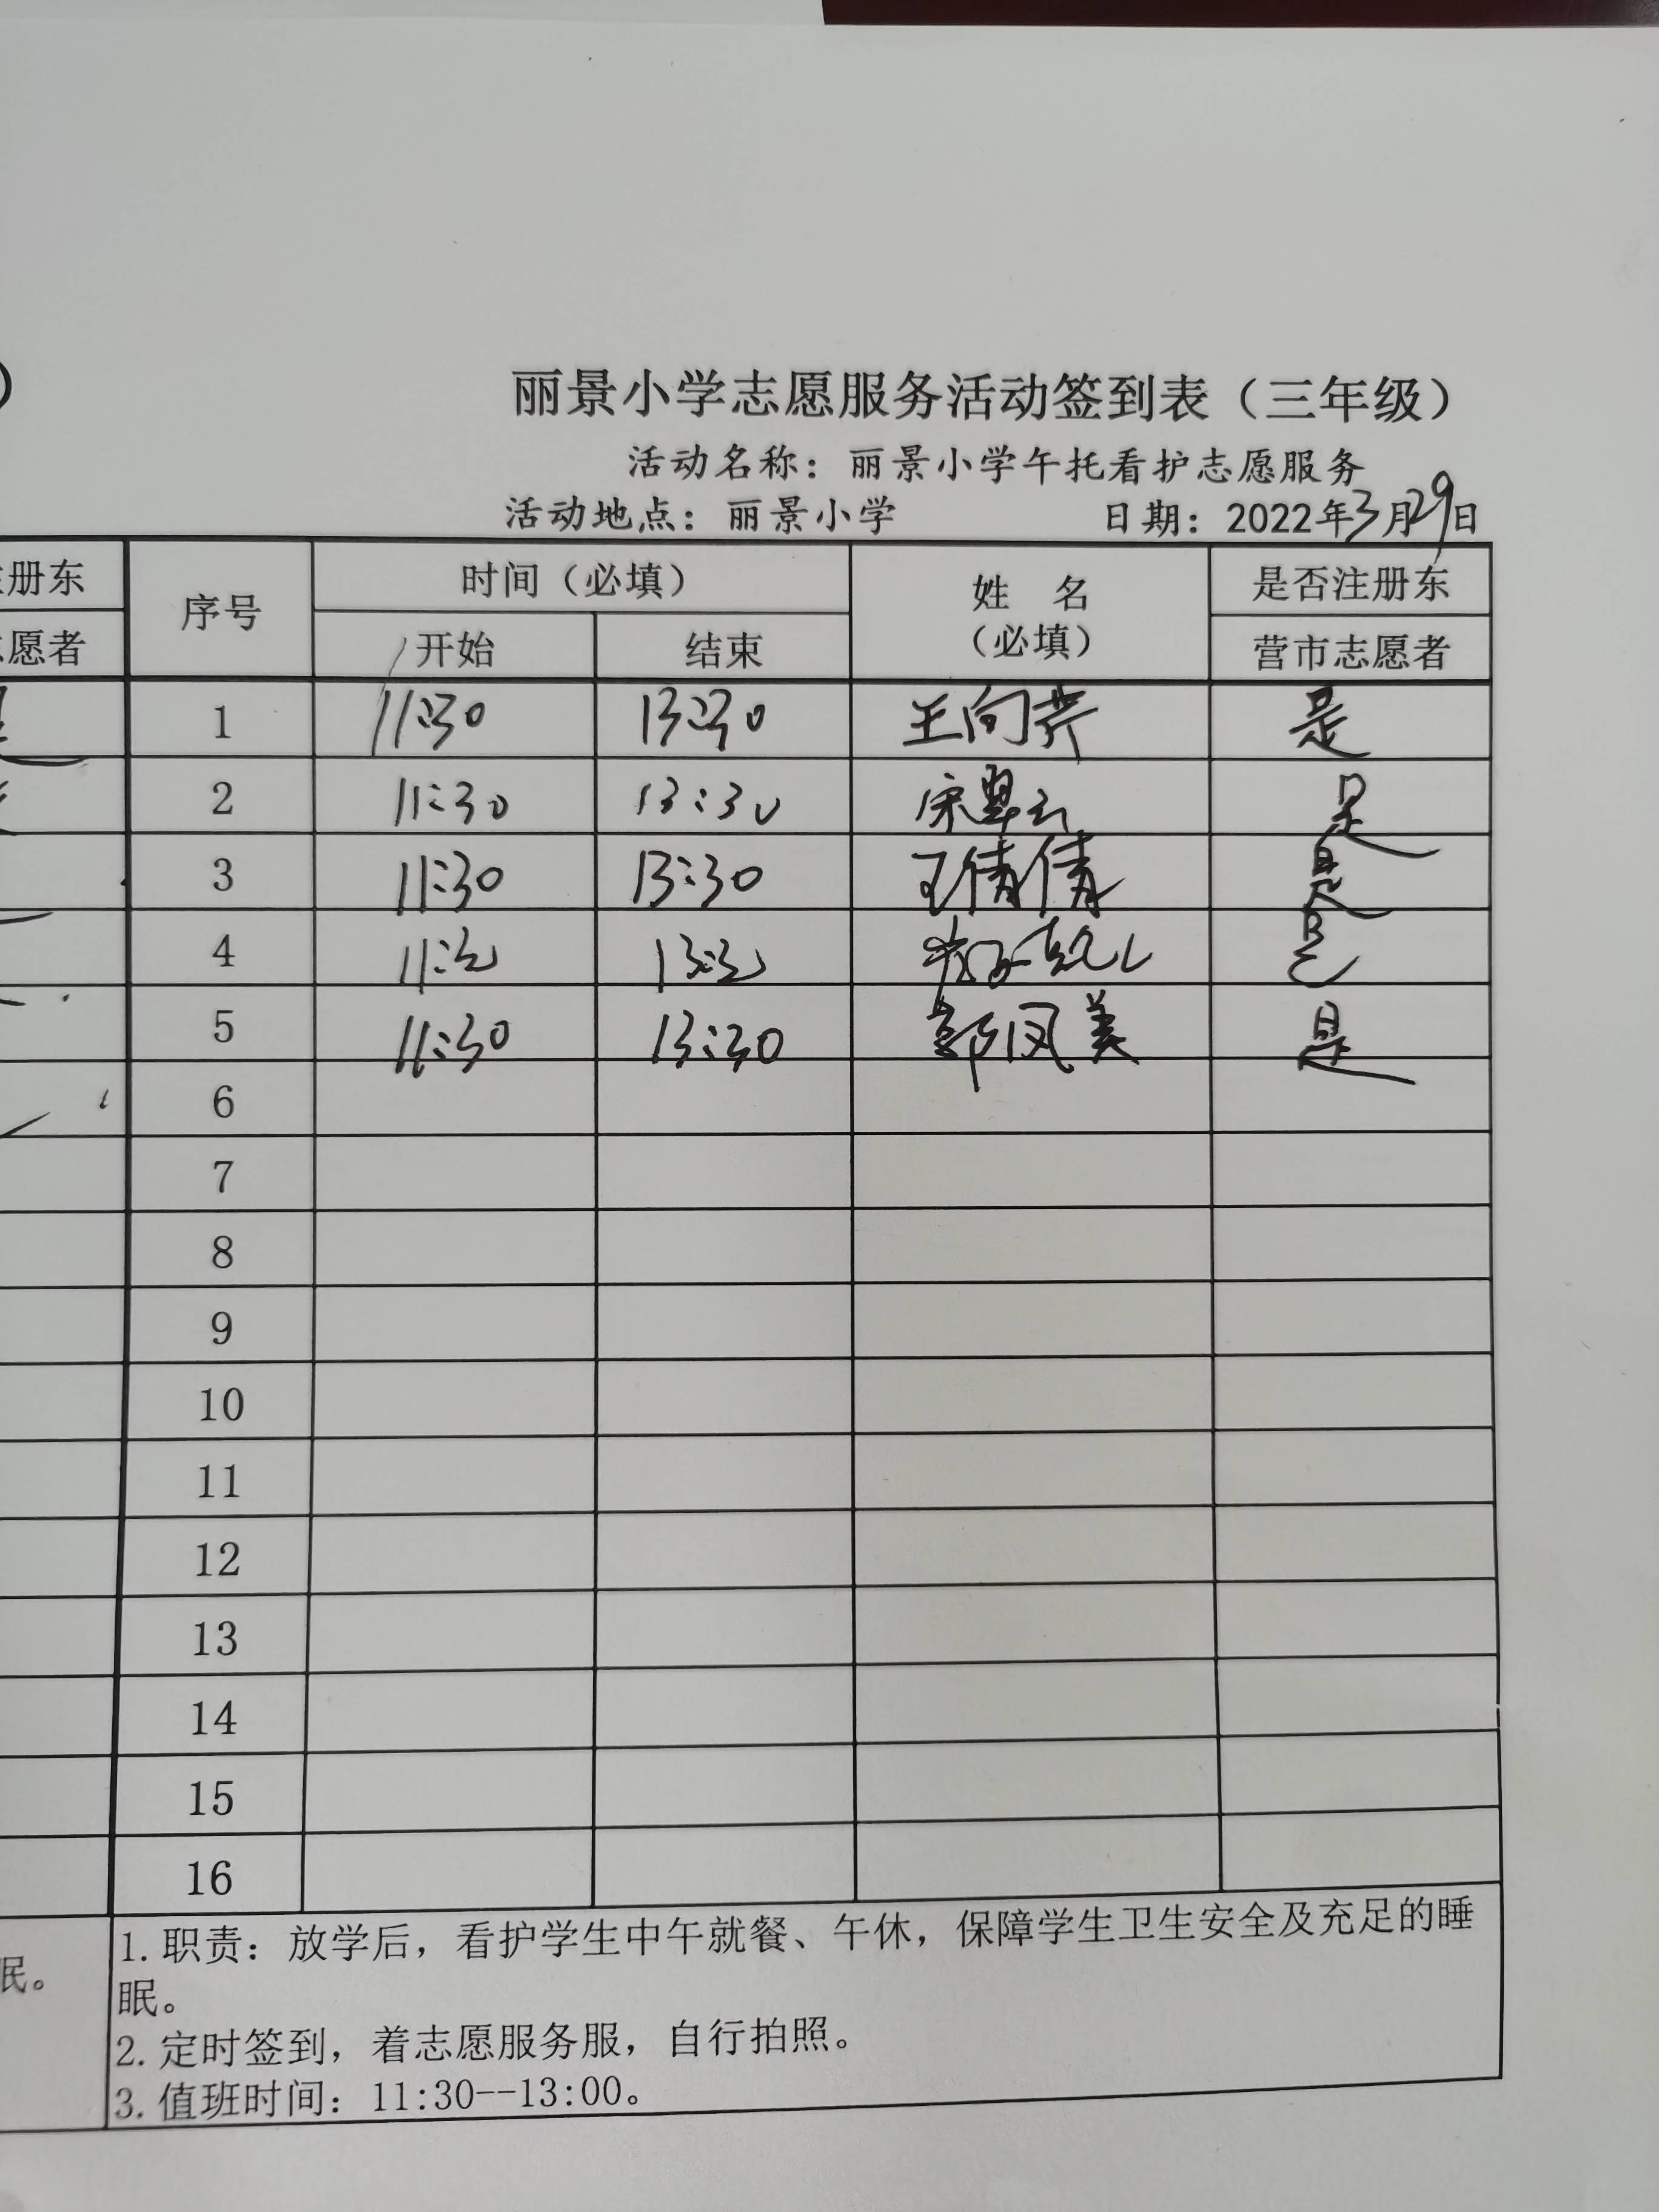 丽景小学志愿服务活动签到表（三年级）
活动名称：丽景小学午托看护志愿服务
活动地点：丽景小学 日期：2022年3月29日
册东 序号 时间（必填） 姓 名 是否注册东
愿者 开始 结束 （必填） 营市志愿者
1 11:30 13:30 王向芹 是
2 11:30 13:30 宋翠云 是
3 11:30 13:30 王倩倩 是
4 11:30 13:30 是
5 11:30 13:30 郭凤美 是
6
7
8
9
10
11
12
13
14
15
16
1.职责：放学后，看护学生中午就餐、午休，保障学生卫生安全及充足的睡
眠。 眠。
2.定时签到，着志愿服务服，自行拍照。
3.值班时间：11:30--13:00。